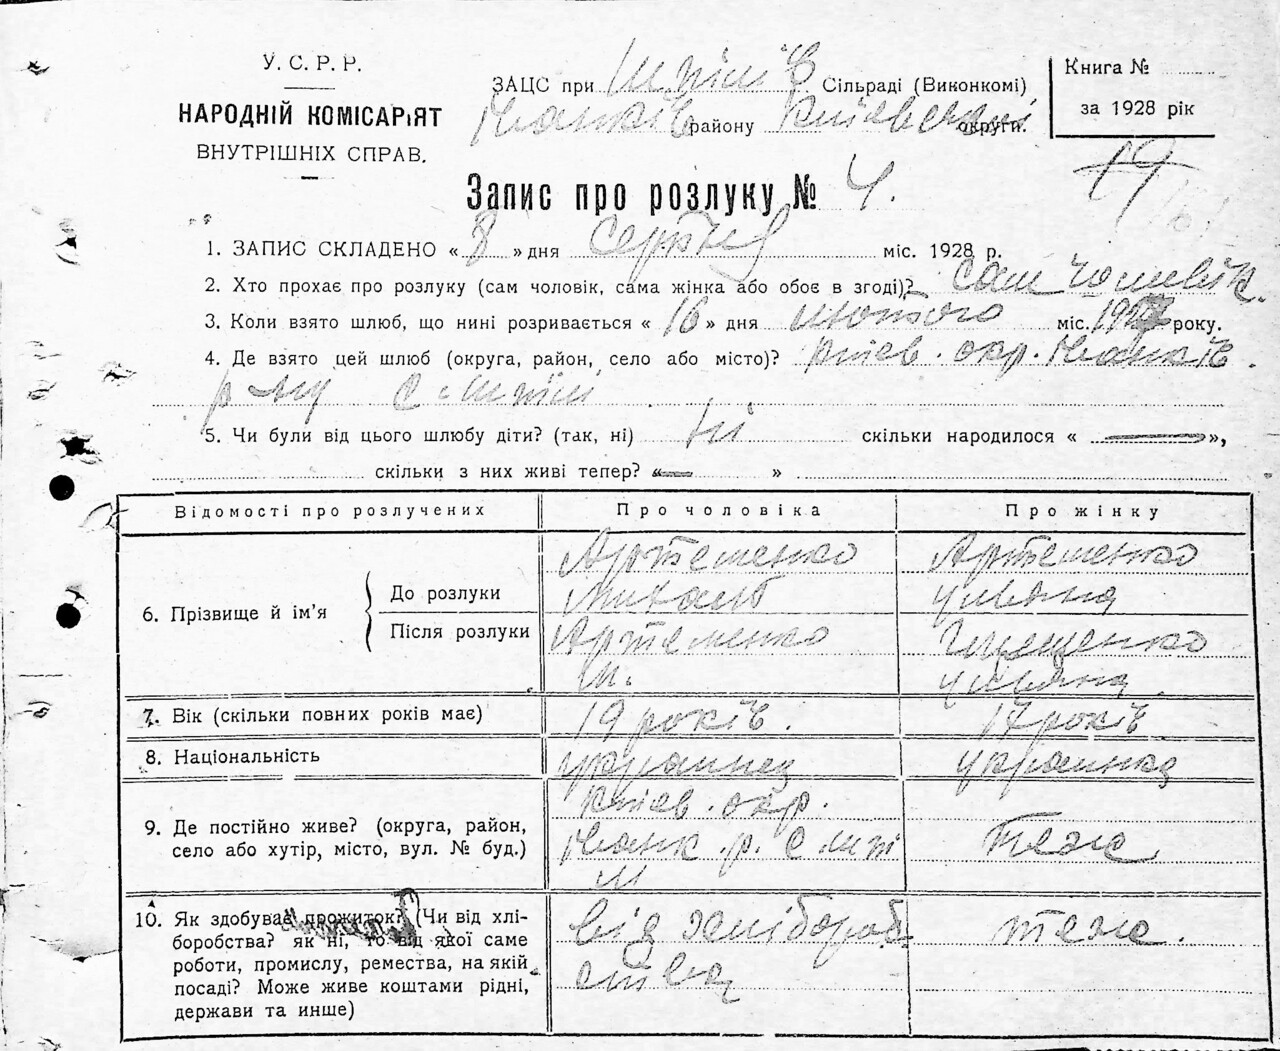 У. С. Р. Р.
НАРОДНІЙ КОМІСАРіЯТ
ВНУТРІШНІХ СПРАВ.
ЗАЦС при Сільраді (Виконкомі)
району округи.
Книга №
за 1928 рік
19
Запис про розлуку № 4.
1. ЗАПИС СКЛАДЕНО « 8 » дня Серпня міс. 1928 р.
2. Хто прохає про розлуку (сам чоловік, сама жінка або обоє в згоді)? Сам чоловік.
3. Коли взято шлюб, що нині розривається « 16 » дня лютого міс. року.
4. Де взято цей шлюб (округа, район, село або місто)? Київ. окр.
5. Чи були від цього шлюбу діти? (так, ні) Ні скільки народилося « — »,
скільки з них живі тепер? « — »
Відомості про розлучених Про чоловіка Про жінку
6. Прізвище й ім’я
До розлуки Артеменко Артеменко
Михайло Уляна
Після розлуки Артеменко
М. Уляна
7. Вік (скільки повних років має) 19 років. 17 років.
8. Національність українец украинка
9. Де постійно живе? (округа, район, село або хутір, місто, вул. № буд.) Київ. окр. теж
10. Як здобуває прожиток? (Чи від хлі-
боробства? як ні, то від якої саме
роботи, промислу, ремества, на якій
посаді? Може живе коштами рідні,
держави та инше)
від хлібороб
ства
теж.